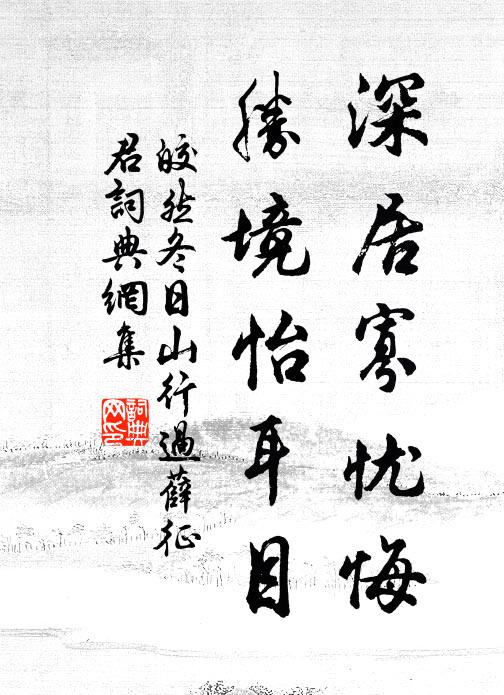 深居寡忧悔
勝境怡耳目
皎然冬日山行過薛征
君詞典網集
詞典
网印